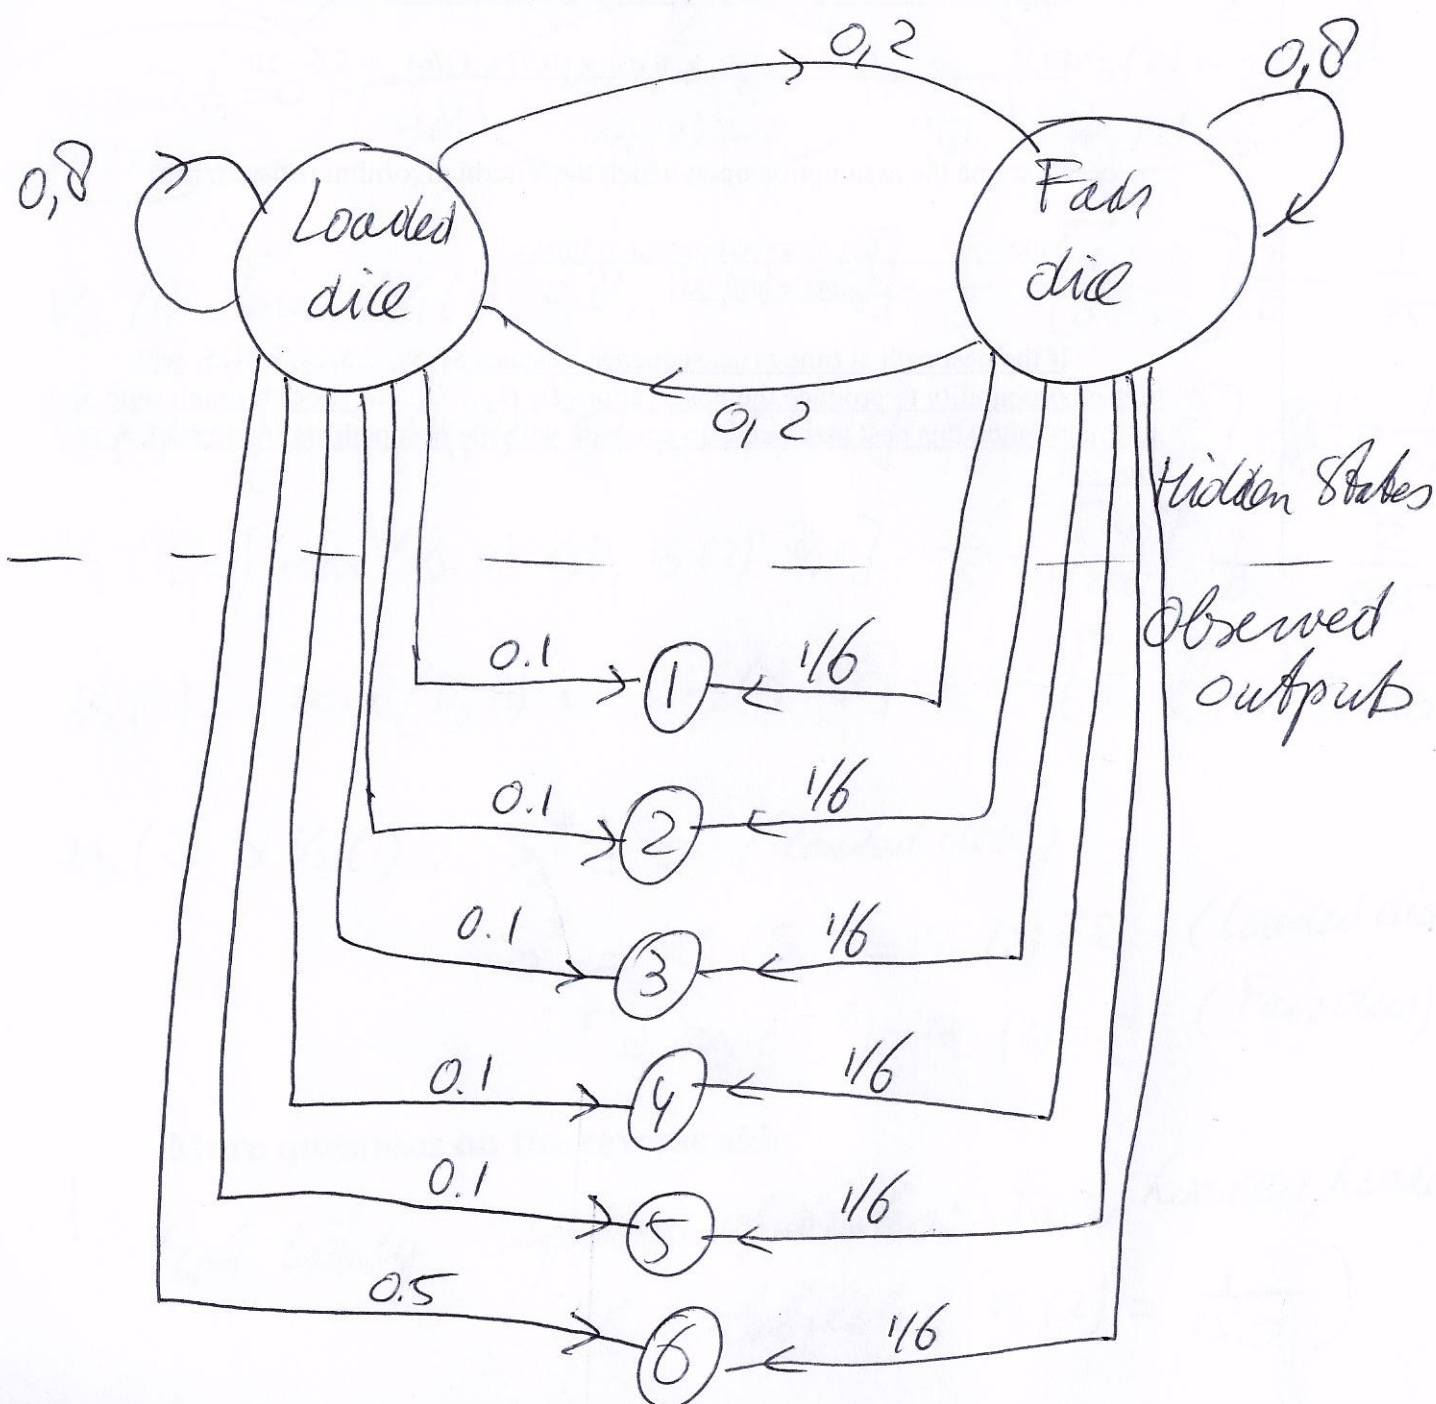 0,2
0,8
0,8
Loaded
dice
Fair
dice
0,2
Hidden States
Observed
outputs
0.1
1
1/6
0.1
2
1/6
0.1
3
1/6
0.1
4
1/6
0.1
5
1/6
0.5
6
1/6